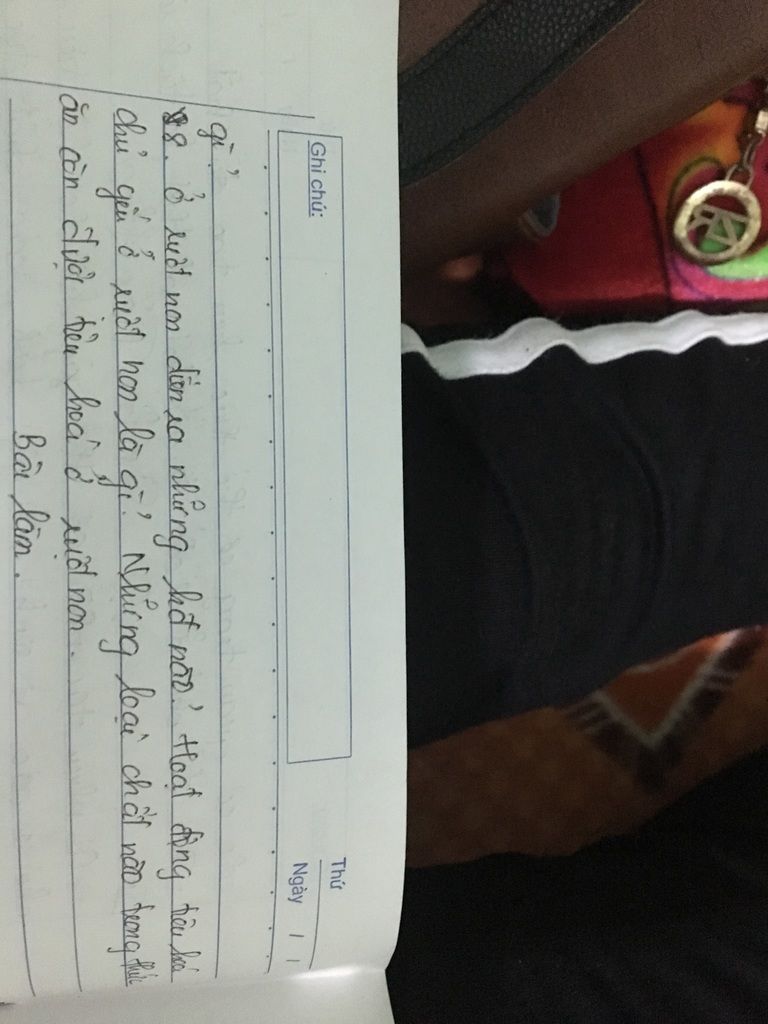 Thứ
Ngày / /
Ghi chú:
gì?
8. ở ruột non diễn ra những hđ nào? Hoạt động tiêu hoá
chủ yếu ở ruột non là gì? Những loại chất nào trong thức
ăn còn được tiêu hoá ở ruột non.
Bài làm.